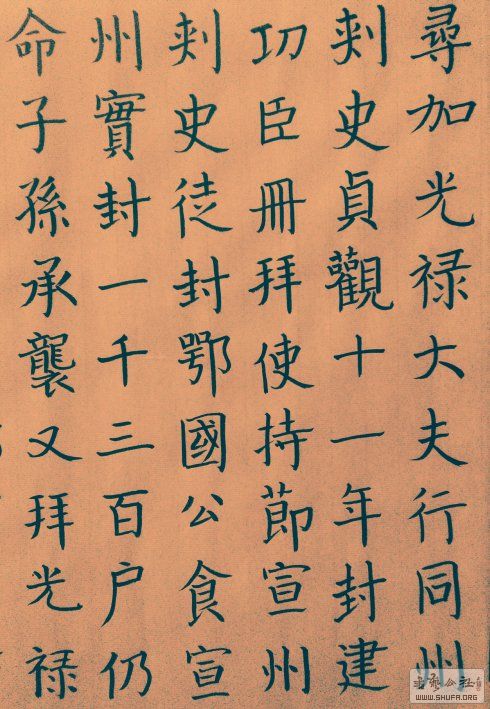 尋加光禄大夫行同州
刾史貞觀十一年封建
功臣冊拜使持節宣州
刾史徒封鄂國公食宣
州實封一千三百户仍
命子孫承襲又拜光禄
WWW.SHUFA.ORG